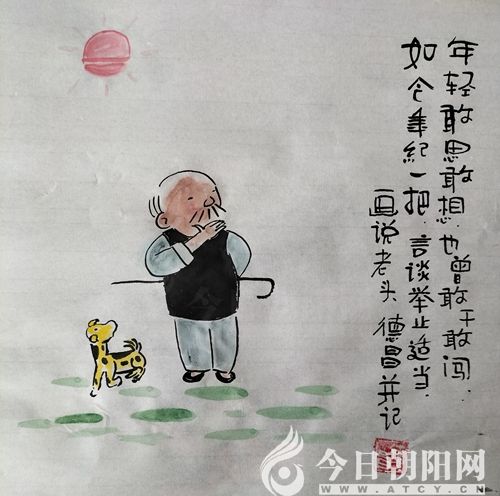 年轻敢思敢想.也曾敢干敢闯.
如今年纪一把.言谈举止适当.
画说老头 德昌并记
今日朝阳网
WWW.ATCY.CN